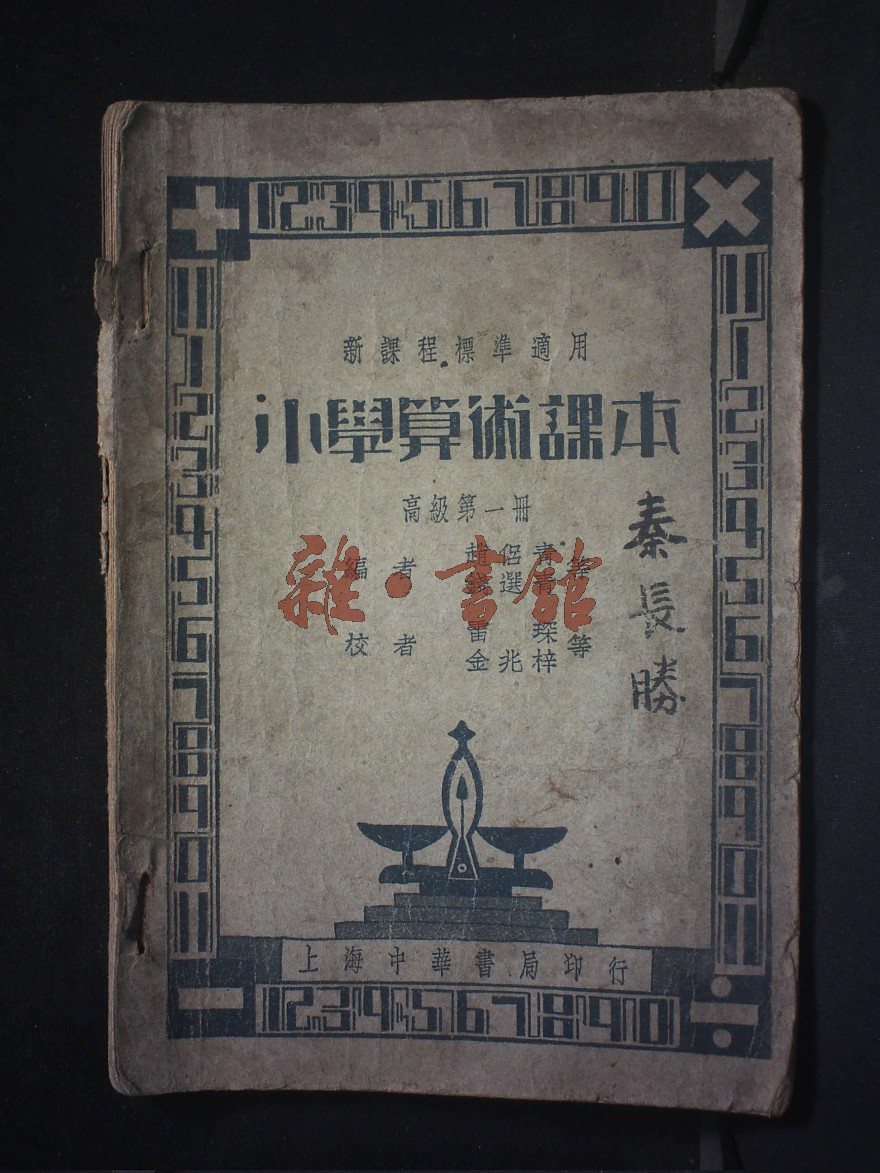 1234567890
新課程標準適用
小學算術課本
高級第一冊
編者 趙侶青 等
錢選青
校者 雷琛 等
金兆梓
秦長勝
雜·書館
上海中華書局印行
1234567890
1234567890
1234567890